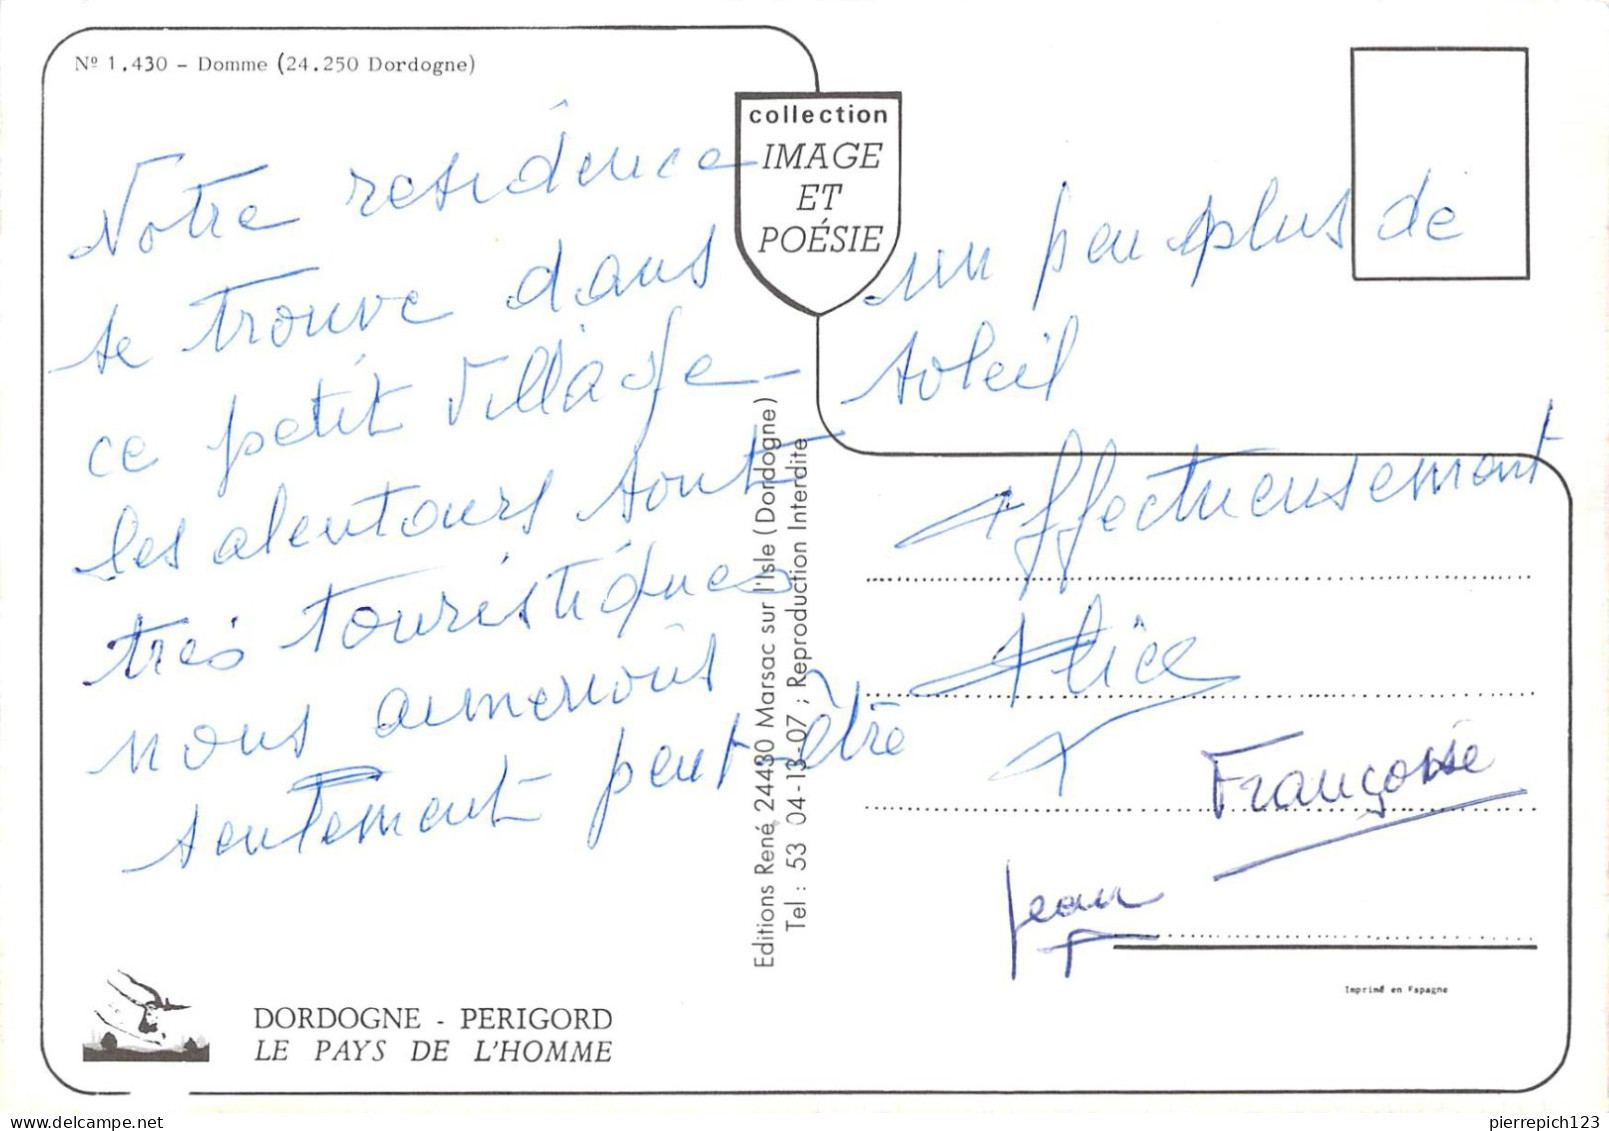 Nº 1.430 - Domme (24.250 Dordogne)
collection
IMAGE
ET
POÉSIE
Notre residence
se trouve dans
ce petit village -
les alentours sont
très touristiques
nous aimerions
seulement peut-être
un peu plus de
soleil
Affectueusement
Alice
Françoise
Jean
Editions René 24430 Marsac sur l'Isle (Dordogne)
Tel : 53 04-13-07 ; Reproduction Interdite
Imprimé en Espagne
DORDOGNE - PERIGORD
LE PAYS DE L'HOMME
pierrepich123